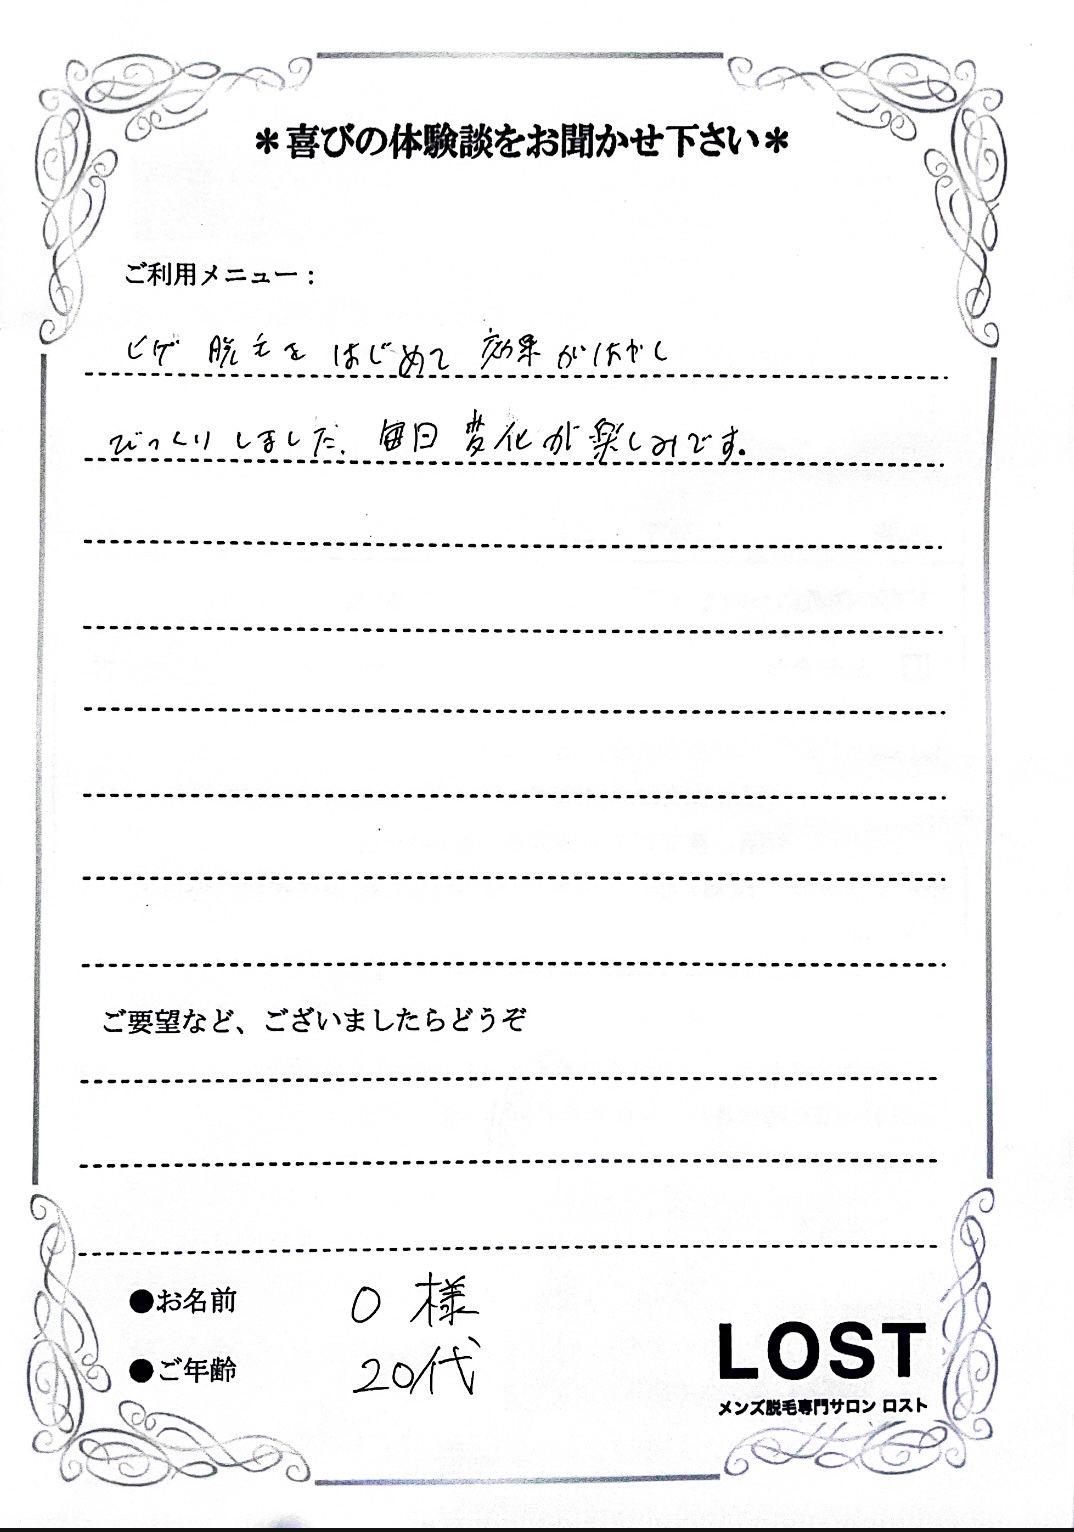 ＊喜びの体験談をお聞かせ下さい＊
ご利用メニュー：
ヒゲ脱毛をはじめて効果がはやく
びっくりしました。毎日変化が楽しみです。
ご要望など、ございましたらどうぞ
●お名前 O様
●ご年齢 20代
LOST
メンズ脱毛専門サロン ロスト